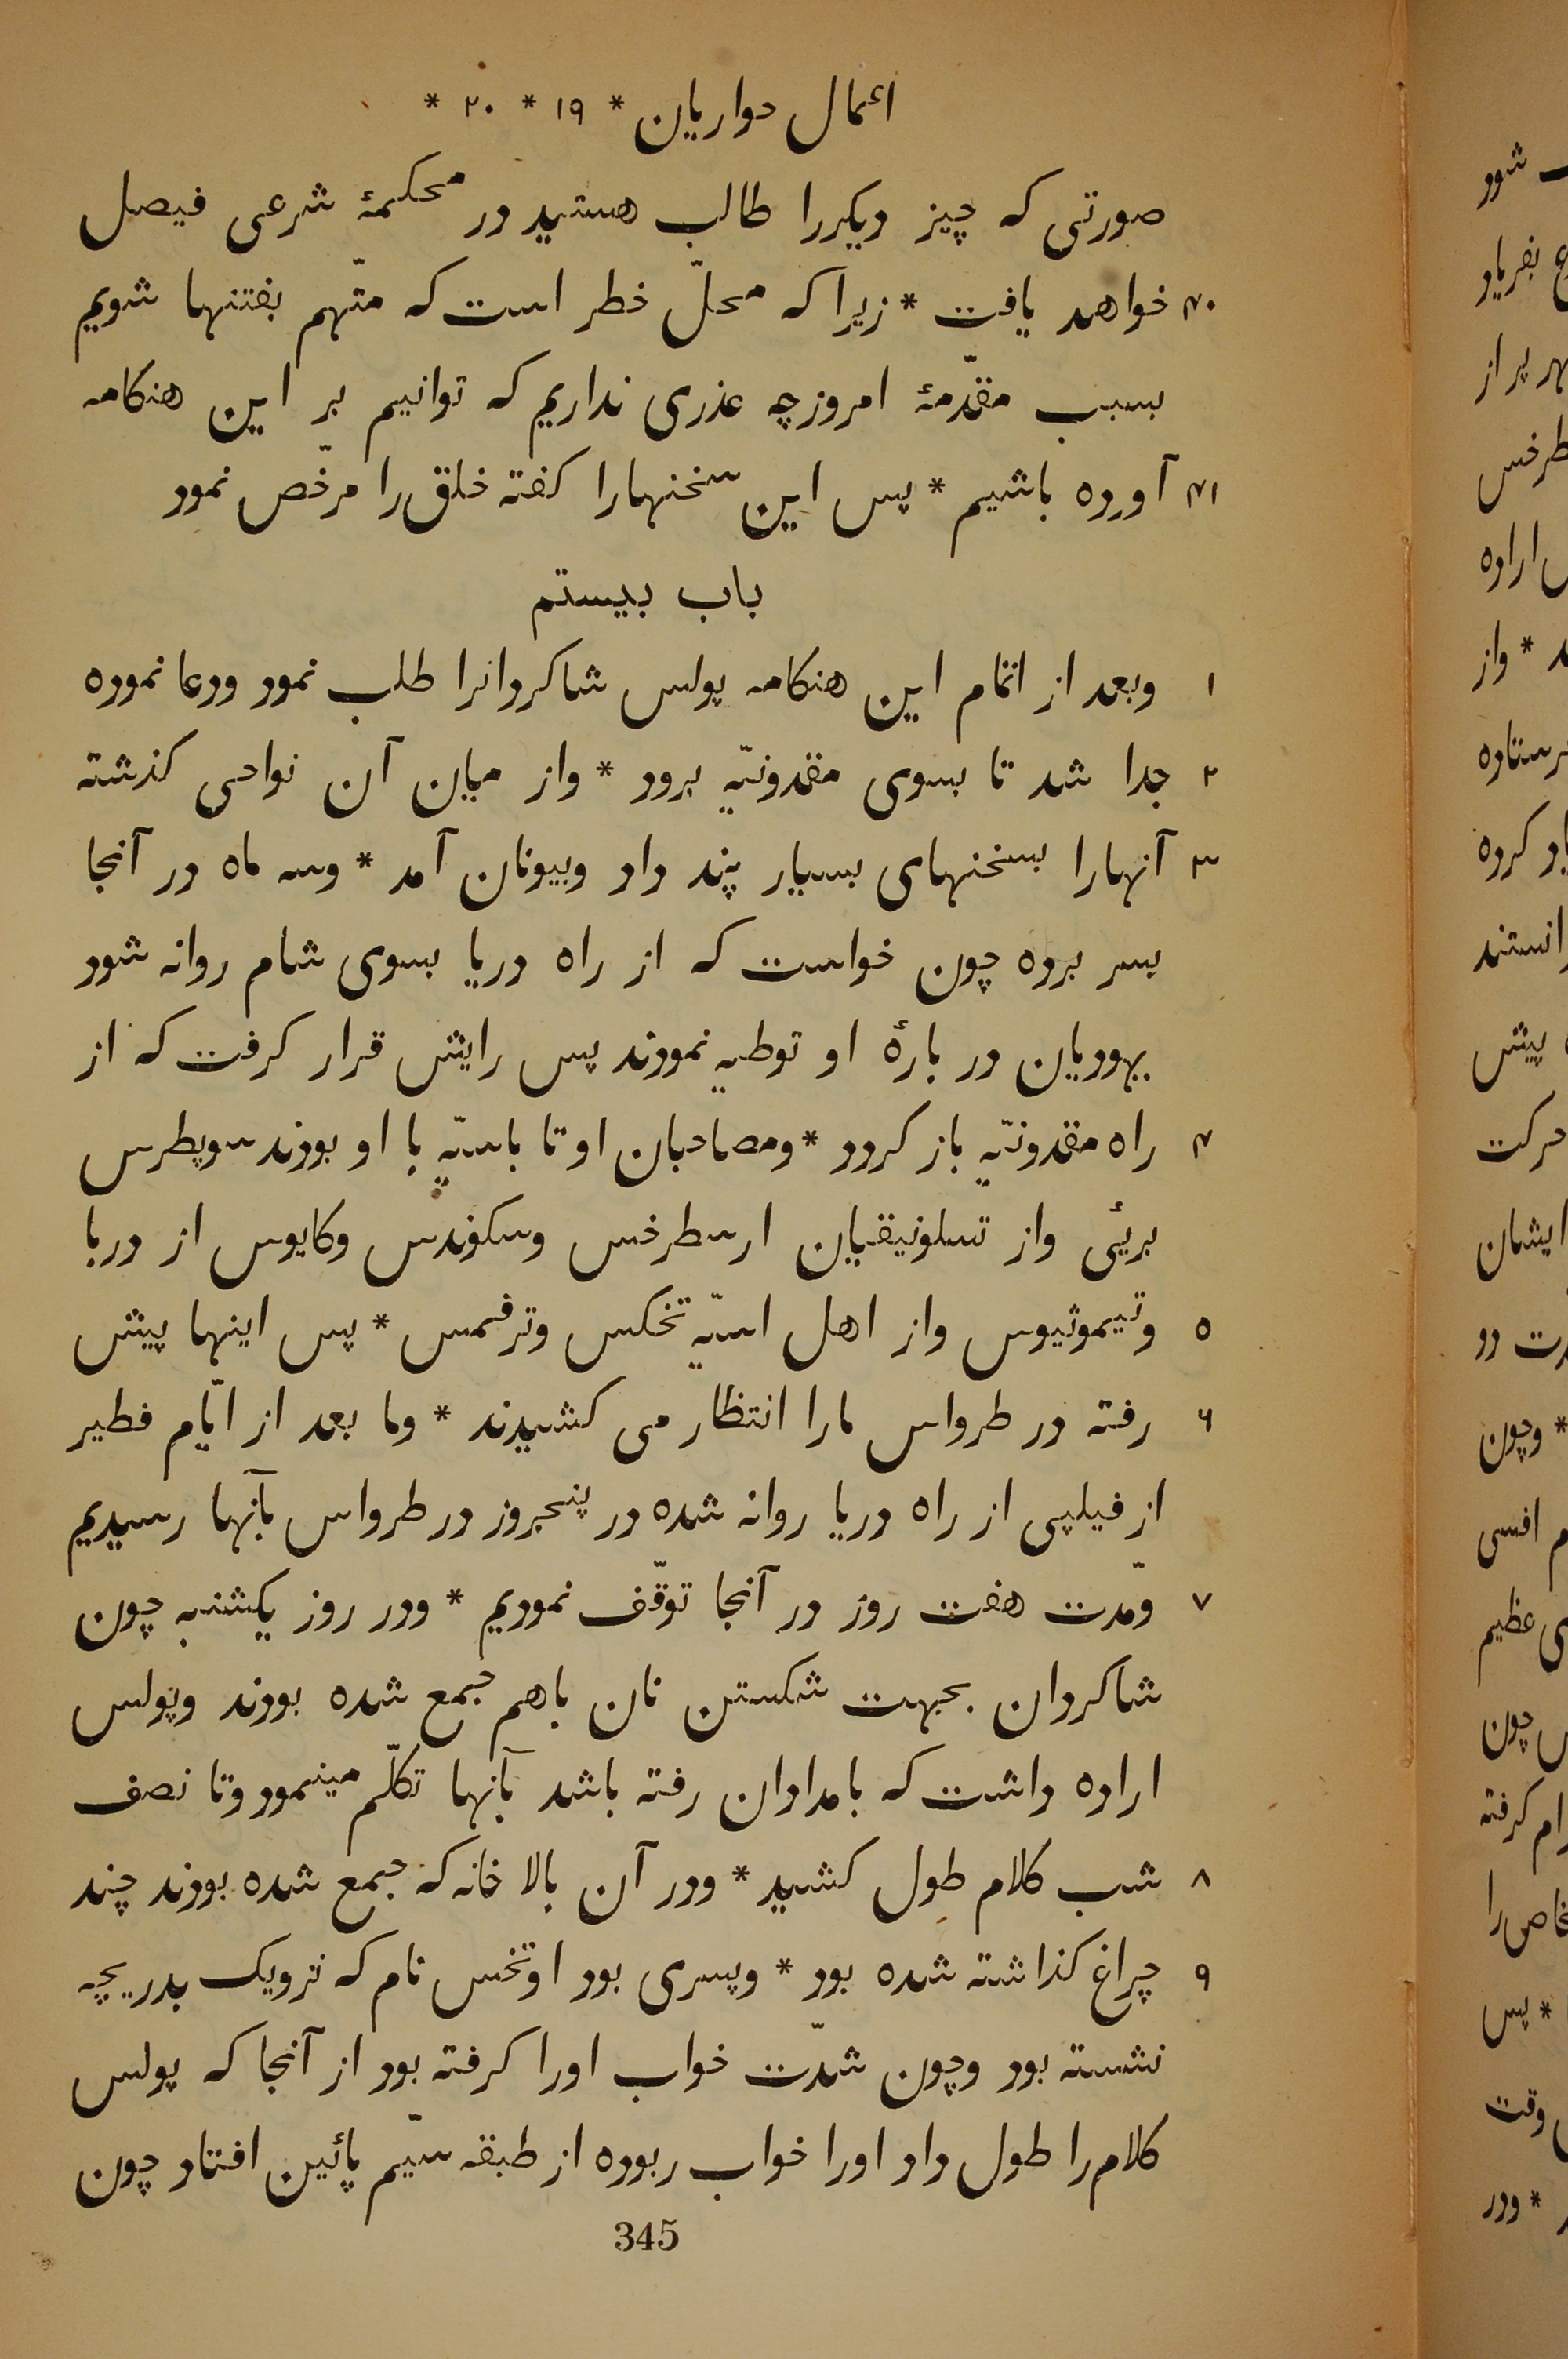 اعمال حواریان * ۱۹ * ۲۰ *
صورتی که چیز دیکررا طالب هستید در محکمهٔ شرعی فیصل
۴۰ خواهد یافت * زیرا که محلّ خطر است که متّهم بفتنها شویم
بسبب مقدّمهٔ امروزچه عذری نداریم که توانیم بر این هنکامه
۴۱ آورده باشیم * پس این سخنهارا کفته خلق را مرخّص نمود
باب بیستم
۱ وبعد از اتمام این هنکامه پولس شاکردانرا طلب نمود ودعا نموده
۲ جدا شد تا بسوی مقدونیّه برود * واز میان آن نواحی کذشته
۳ آنهارا بسخنهای بسیار پند داد وبیونان آمد * وسه ماه در آنجا
بسر برده چون خواست که از راه دریا بسوی شام روانه شود
یهودیان در بارهٔ او توطیه نمودند پس رایش قرار کرفت که از
۴ راه مقدونیّه باز کردد * ومصاحبان او تا باسّیه با او بودند سوپطرس
بریئی واز تسلونیقیان ارسطرخس وسکوندس وکایوس از دربا
۵ وتیموثیوس واز اهل اسّیه تخکس وترفمس * پس اینها پیش
۶ رفته در طرواس مارا انتظار می کشیدند * وما بعد از ایّام فطیر
از فیلپی از راه دریا روانه شده در پنجروز در طرواس بآنها رسیدیم
۷ ومّدت هفت روز در آنجا توقّف نمودیم * ودر روز یکشنبه چون
شاکردان بجهت شکستن نان باهم جمع شده بودند وپولس
اراده داشت که بامدادان رفته باشد بآنها تکلّم مینمود وتا نصف
۸ شب کلام طول کشید * ودر آن بالا خانه که جمع شده بودند چند
۹ چراغ کذاشته شده بود * وپسری بود اوتخس نام که نزدیک بدریچه
نشسته بود وچون شدّت خواب اورا کرفته بود از آنجا که پولس
کلام را طول داد اورا خواب ربوده از طبقه سیّم پائین افتاد چون
345